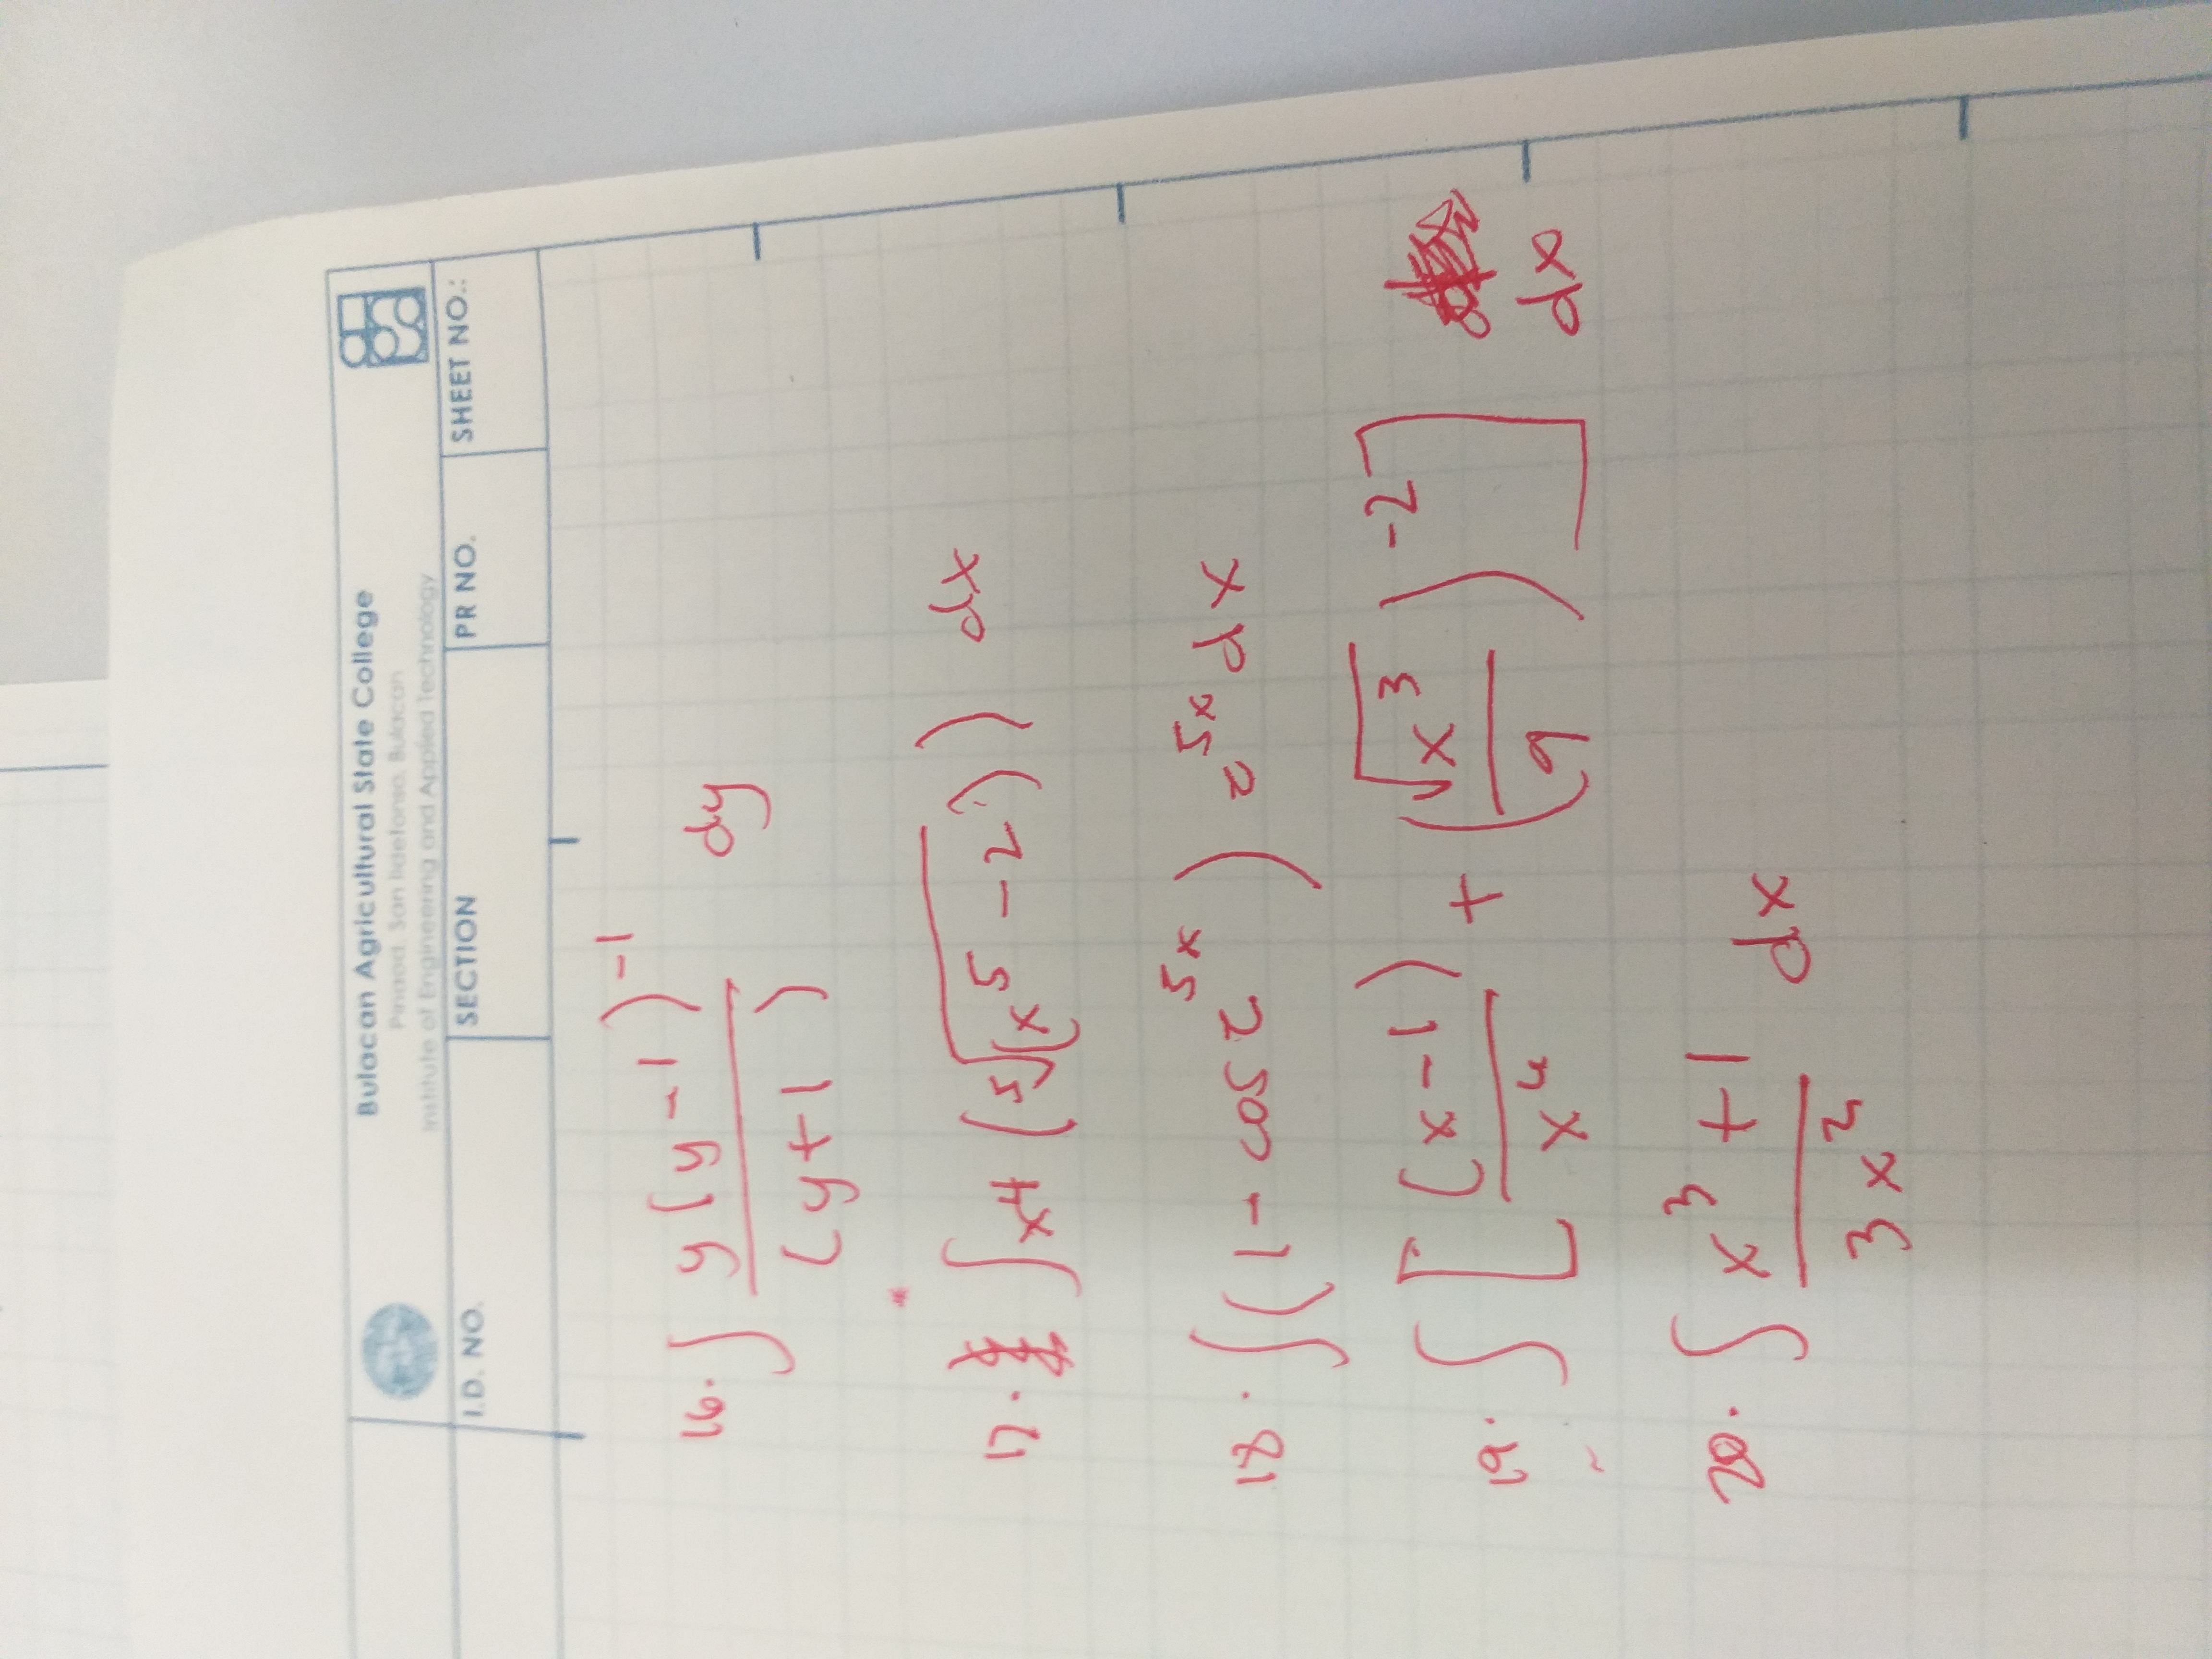 Bulacan Agricultural State College
Pinaod, San Ildefonso, Bulacan
Institute of Engineering and Applied Technology
I.D. NO. SECTION PR NO. SHEET NO.:
16. ∫ y(y-1)⁻¹ / (y+1) dy
17. ∫ x4 (⁵√(x⁵-2)) dx
18. ∫(1-cos 2⁵ˣ) 2⁵ˣ dx
19. ∫ [(x-1) / x⁴ + (√x³ / 9)⁻²] dx
20. ∫ x³+1 / 3x² dx